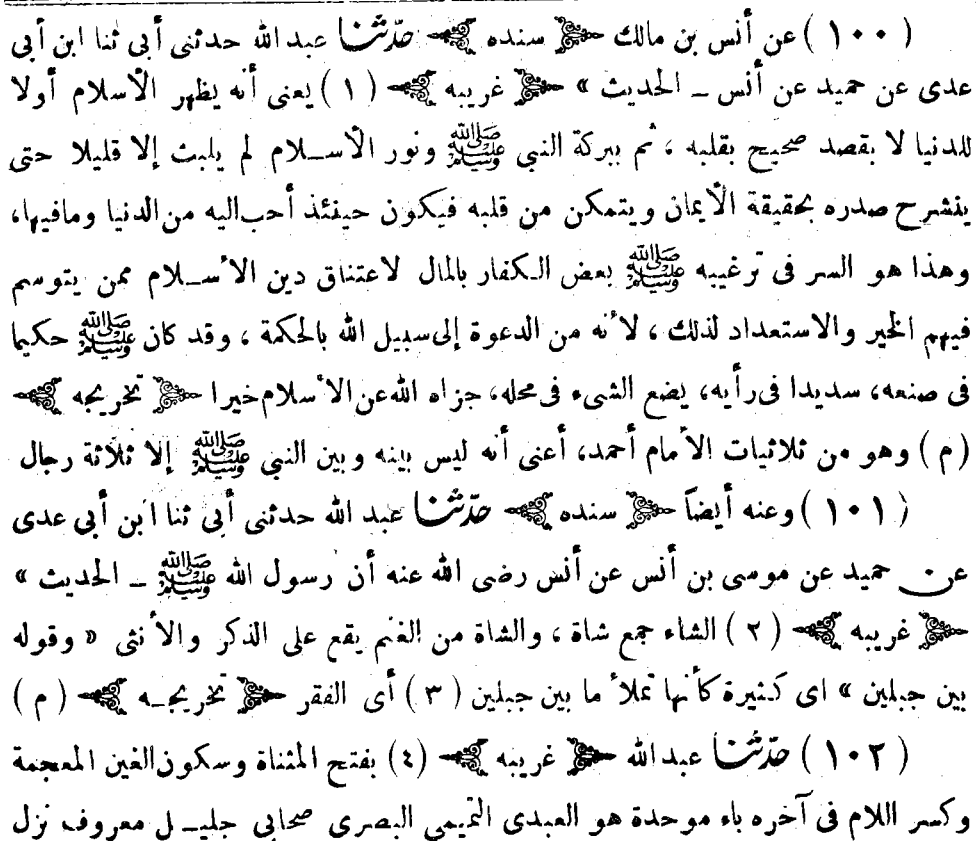 ( ١٠٠ ) عن أنس بن مالك ﴿ سنده ﴾ حدّثنا عبد الله حدثنى أبى ثنا ابن أبى
عدى عن حميد عن أنس ــ الحديث » ﴿ غريبه ﴾ ( ١ ) يعنى أنه يظهر الأسلام أولا
للدنيا لا بقصد صحيح بقلبه ، ثم ببركة النبي ﷺ ونور الأسلام لم يلبث إلا قليلا حتى
ينشرح صدره بحقيقة الأيمان ويتمكن من قلبه فيكون حينئذ أحب اليه من الدنيا ومافيها،
وهذا هو السر فى ترغيبه ﷺ بعض الكفار بالمال لاعتناق دين الأسلام ممن يتوسم
فيهم الخير والاستعداد لذلك ، لأنه من الدعوة إلى سبيل الله بالحكمة ، وقد كان ﷺ حكيما
فى صنعه، سديدا فى رأيه، يضع الشىء فى محله، جزاه الله عن الأسلام خيرا ﴿ تخريجه ﴾
( م ) وهو من ثلاثيات الأمام أحمد، أعنى أنه ليس بينه وبين النبي ﷺ إلا ثلاثة رجال
( ١٠١ ) وعنه أيضاً ﴿ سنده ﴾ حدّثنا عبد الله حدثنى أبى ثنا ابن أبى عدى
عن حميد عن موسى بن أنس عن أنس رضى الله عنه أن رسول الله ﷺ ــ الحديث »
﴿ غريبه ﴾ ( ٢ ) الشاء جمع شاة ، والشاة من الغنم يقع على الذكر والأنثى « وقوله
بين جبلين » اى كثيرة كأنها تملأ ما بين جبلين ( ٣ ) أى الفقر ﴿ تخريجه ﴾ ( م )
( ١٠٢ ) حدّثنا عبد الله ﴿ غريبه ﴾ (٤) بفتح المثناة وسكون الغين المعجمة
وكسر اللام فى آخره باء موحدة هو العبدى التميمى البصرى صحابى جليل معروف نزل